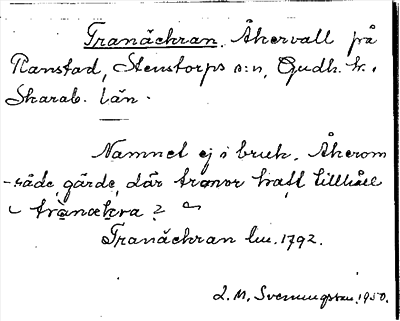 Tranåckran. Åkervall på
Ranstad, Stenstorps s:n, Gudh. h.,
Skarab. län.
Namnet ej i bruk. Åkerom
-råde, gärde, där tranor haft tillhåll
tranåkra?
Tranåckran lm. 1792.
L. M. Svenungsson. 1950.